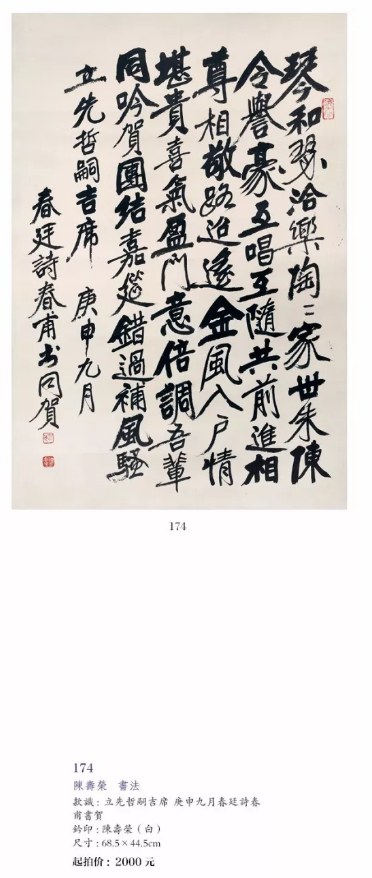 琴和瑟洽樂陶〻家世朱陳
令譽豪互唱互隨共前進相
尊相敬路迢遙金風入戶情
堪貴喜氣盈門意倍調吾輩
同吟賀團結嘉筵錯過補風騷
立先哲嗣吉席 庚申九月
春廷詩春甫书同賀
174
174
陳壽榮 書法
款識:立先哲嗣吉席 庚申九月春廷詩春
甫書賀
鈐印:陳壽榮(白)
尺寸:68.5×44.5cm
起拍價:2000 元